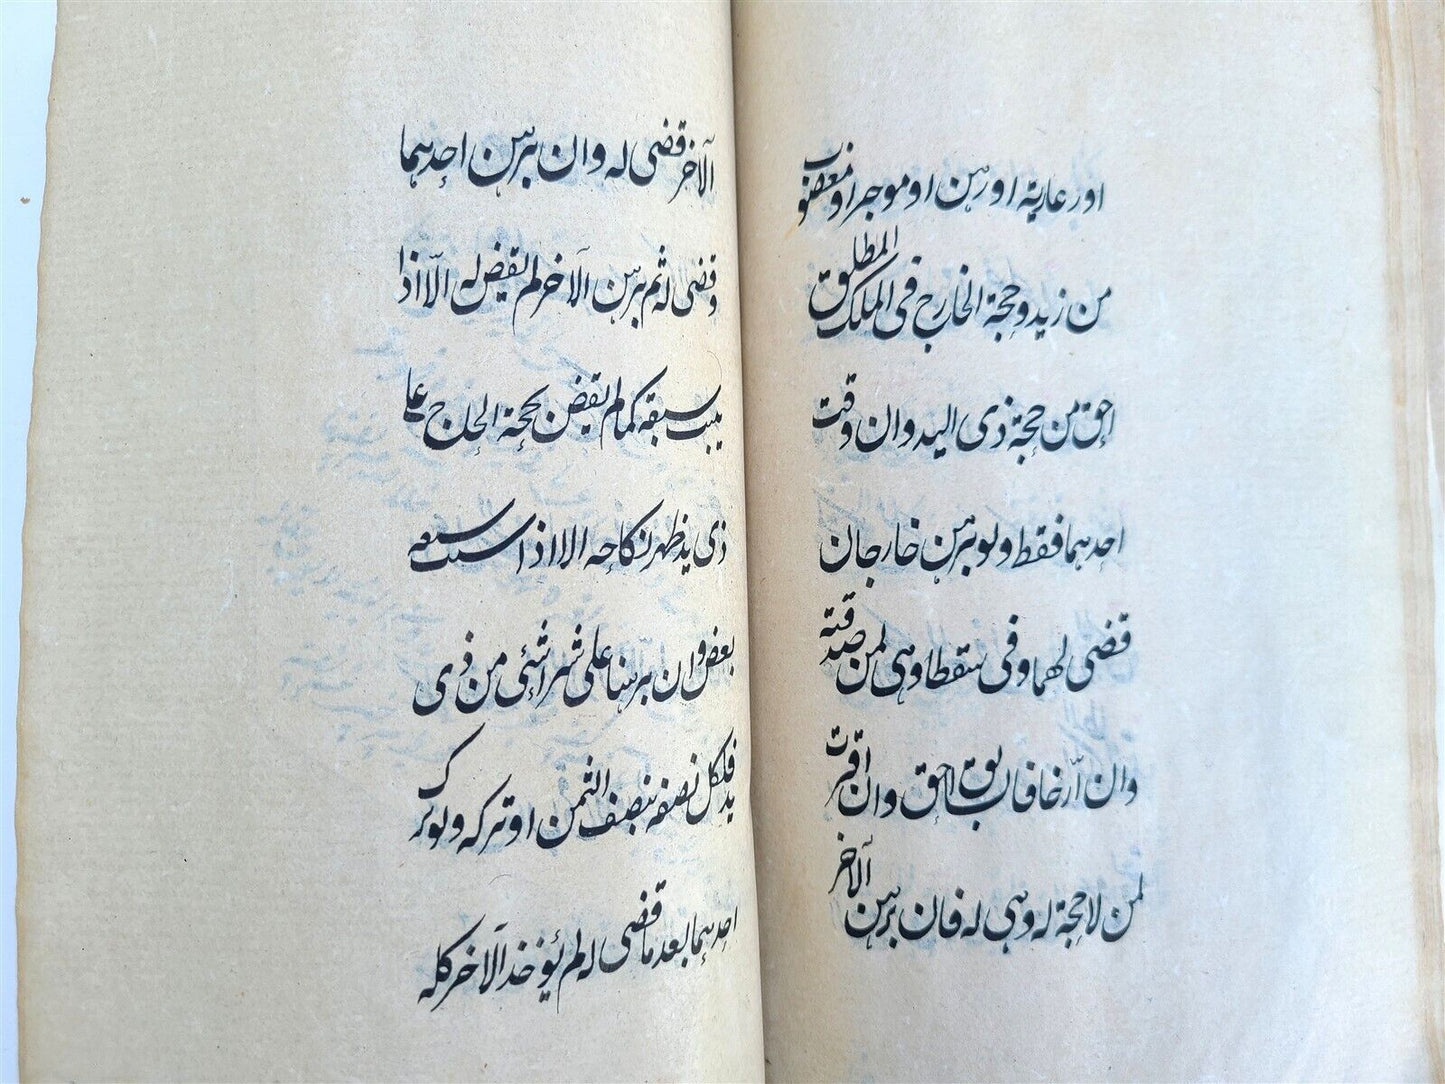 او رعاية او رهن او موجر او مغصوب
من زيد وحجة الخارج فى الملك المطلق
احق من حجة ذى اليد وان وقت
احدهما فقط ولو برهن خارجان
قضى لهما وفى سقطا وهى لمن صدقته
وان أرخا فالسابق احق وان اقرت
لمن لا حجة له وهى له فان برهن الآخر
الآخر قضى له وان برهن احدهما
وقضى له ثم برهن الآخر لم يقض له الّا اذا
يثبت سبقه كما لم يقض بحجة الخارج على
ذى يد ظهر نكاحه الا اذا ثبت سبقه
بعض وان برهنا على شراشئ من ذى
يد فلكل نصفه بنصف الثمن او تركه ولو ترك
احدهما بعد ما قضى له لم يؤخذ الآخر كله